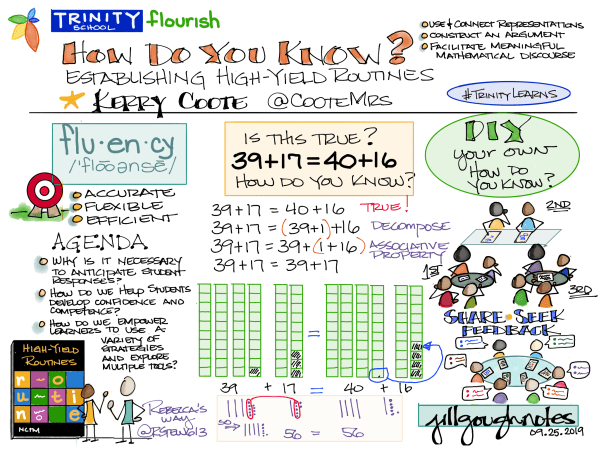 TRINITY
SCHOOL
flourish
USE & CONNECT REPRESENTATIONS
CONSTRUCT AN ARGUMENT
FACILITATE MEANINGFUL
MATHEMATICAL DISCOURSE
HOW DO YOU KNOW?
ESTABLISHING HIGH-YIELD ROUTINES
KERRY COOTE @COOTEMRS
#TRINITYLEARNS
flu·en·cy
/'flōoənsē/
ACCURATE
FLEXIBLE
EFFICIENT
AGENDA
WHY IS IT NECESSARY
TO ANTICIPATE STUDENT
RESPONSES?
HOW DO WE HELP STUDENTS
DEVELOP CONFIDENCE AND
COMPETENCE?
HOW DO WE EMPOWER
LEARNERS TO USE A
VARIETY OF
STRATEGIES
AND EXPLORE
MULTIPLE TOOLS?
HIGH-YIELD
ROUTINES
r-o
u-ti
n e
NCTM
IS THIS TRUE?
39+17=40+16
HOW DO YOU KNOW?
39+17 = 40+16 TRUE!
39+17 = (39+1)+16 DECOMPOSE
39+17 = 39+(1+16) ASSOCIATIVE
PROPERTY
39+17 = 39+17
=
39 + 17 = 40 + 16
REBECCA'S
WAY
50
56 = 56
DIY
your own
HOW DO
YOU KNOW?
2ND
1ST
3RD
SHARE·SEEK
FEEDBACK
jillgoughnotes
09.25.2019